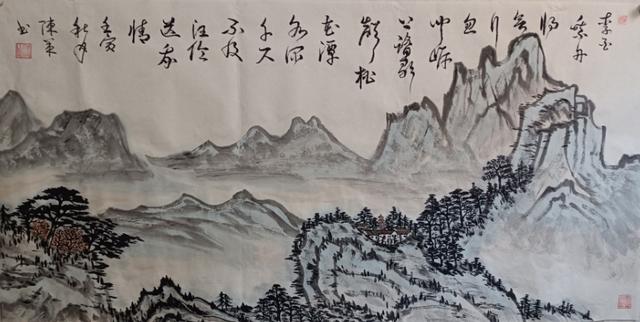 李白
乘舟
将
欲
行
忽
闻岸
上踏歌
声桃
花潭
水深
千尺
不及
汪伦
送我
情
壬寅
秋月
陳
书